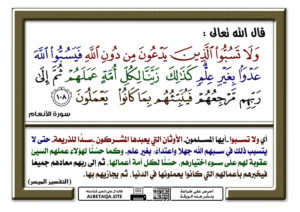 قال الله تعالى :
وَلَا تَسُبُّوا۟ ٱلَّذِينَ يَدْعُونَ مِن دُونِ ٱللَّهِ فَيَسُبُّوا۟ ٱللَّهَ
عَدْوًۢا بِغَيْرِ عِلْمٍ ۗ كَذَٰلِكَ زَيَّنَّا لِكُلِّ أُمَّةٍ عَمَلَهُمْ ثُمَّ إِلَىٰ
رَبِّهِم مَّرْجِعُهُمْ فَيُنَبِّئُهُم بِمَا كَانُوا۟ يَعْمَلُونَ ١٠٨
سورة الأنعام
أي ولا تسبوا -أيها المسلمون- الأوثان التي يعبدها المشركون -سدًّا للذريعة- حتى لا
يتسبب ذلك في سبهم الله جهلا واعتداءً: بغير علم. وكما حسَّنَّا لهؤلاء عملهم السيئ
عقوبة لهم على سوء اختيارهم، حسَّنَّا لكل أمة أعمالها، ثم إلى ربهم معادهم جميعا
فيخبرهم بأعمالهم التي كانوا يعملونها في الدنيا، ثم يجازيهم بها.
( التفسير الميسر )
ALBETAQA.SITE